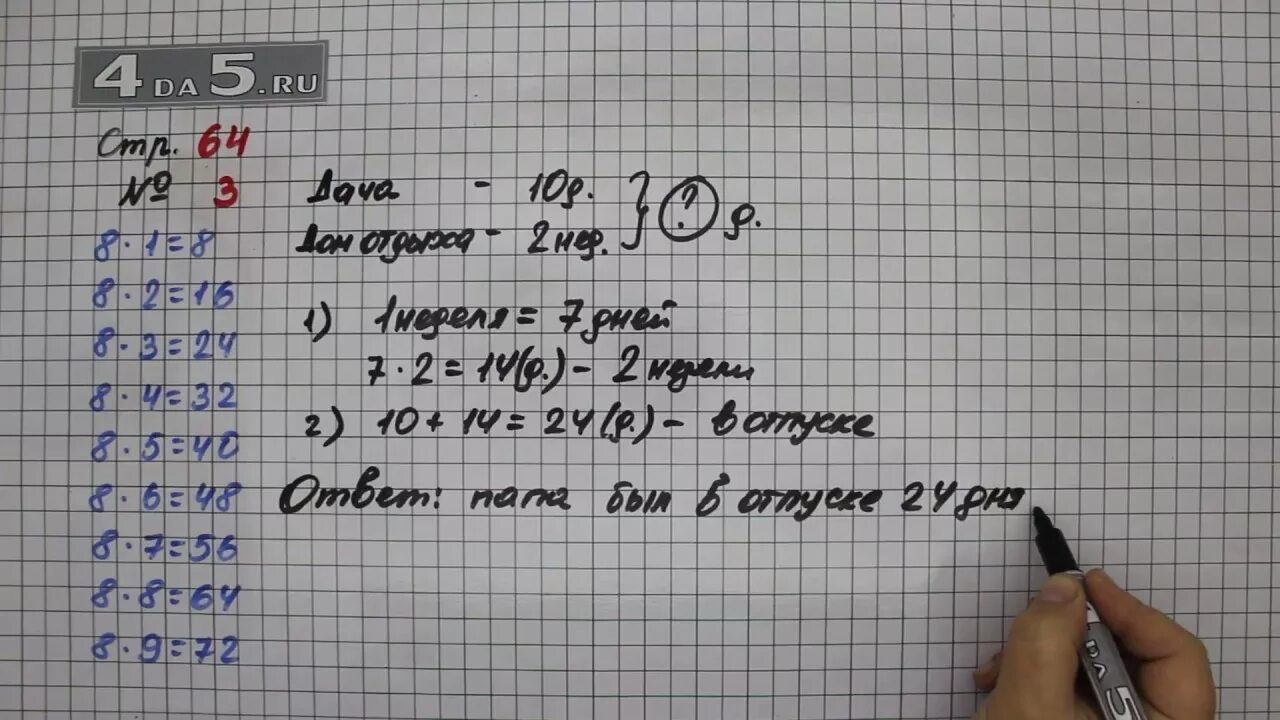 4DA5.RU
Стр. 64
№ 3
8·1=8
8·2=16
8·3=24
8·4=32
8·5=40
8·6=48
8·7=56
8·8=64
8·9=72
Дача - 10д.
Дом отдыха - 2 нед. } ? д.
1) 1 неделя = 7 дней
7·2=14(д.) - 2 недели
2) 10+14=24(д.) - в отпуске
Ответ: папа был в отпуске 24 дня
4DA5